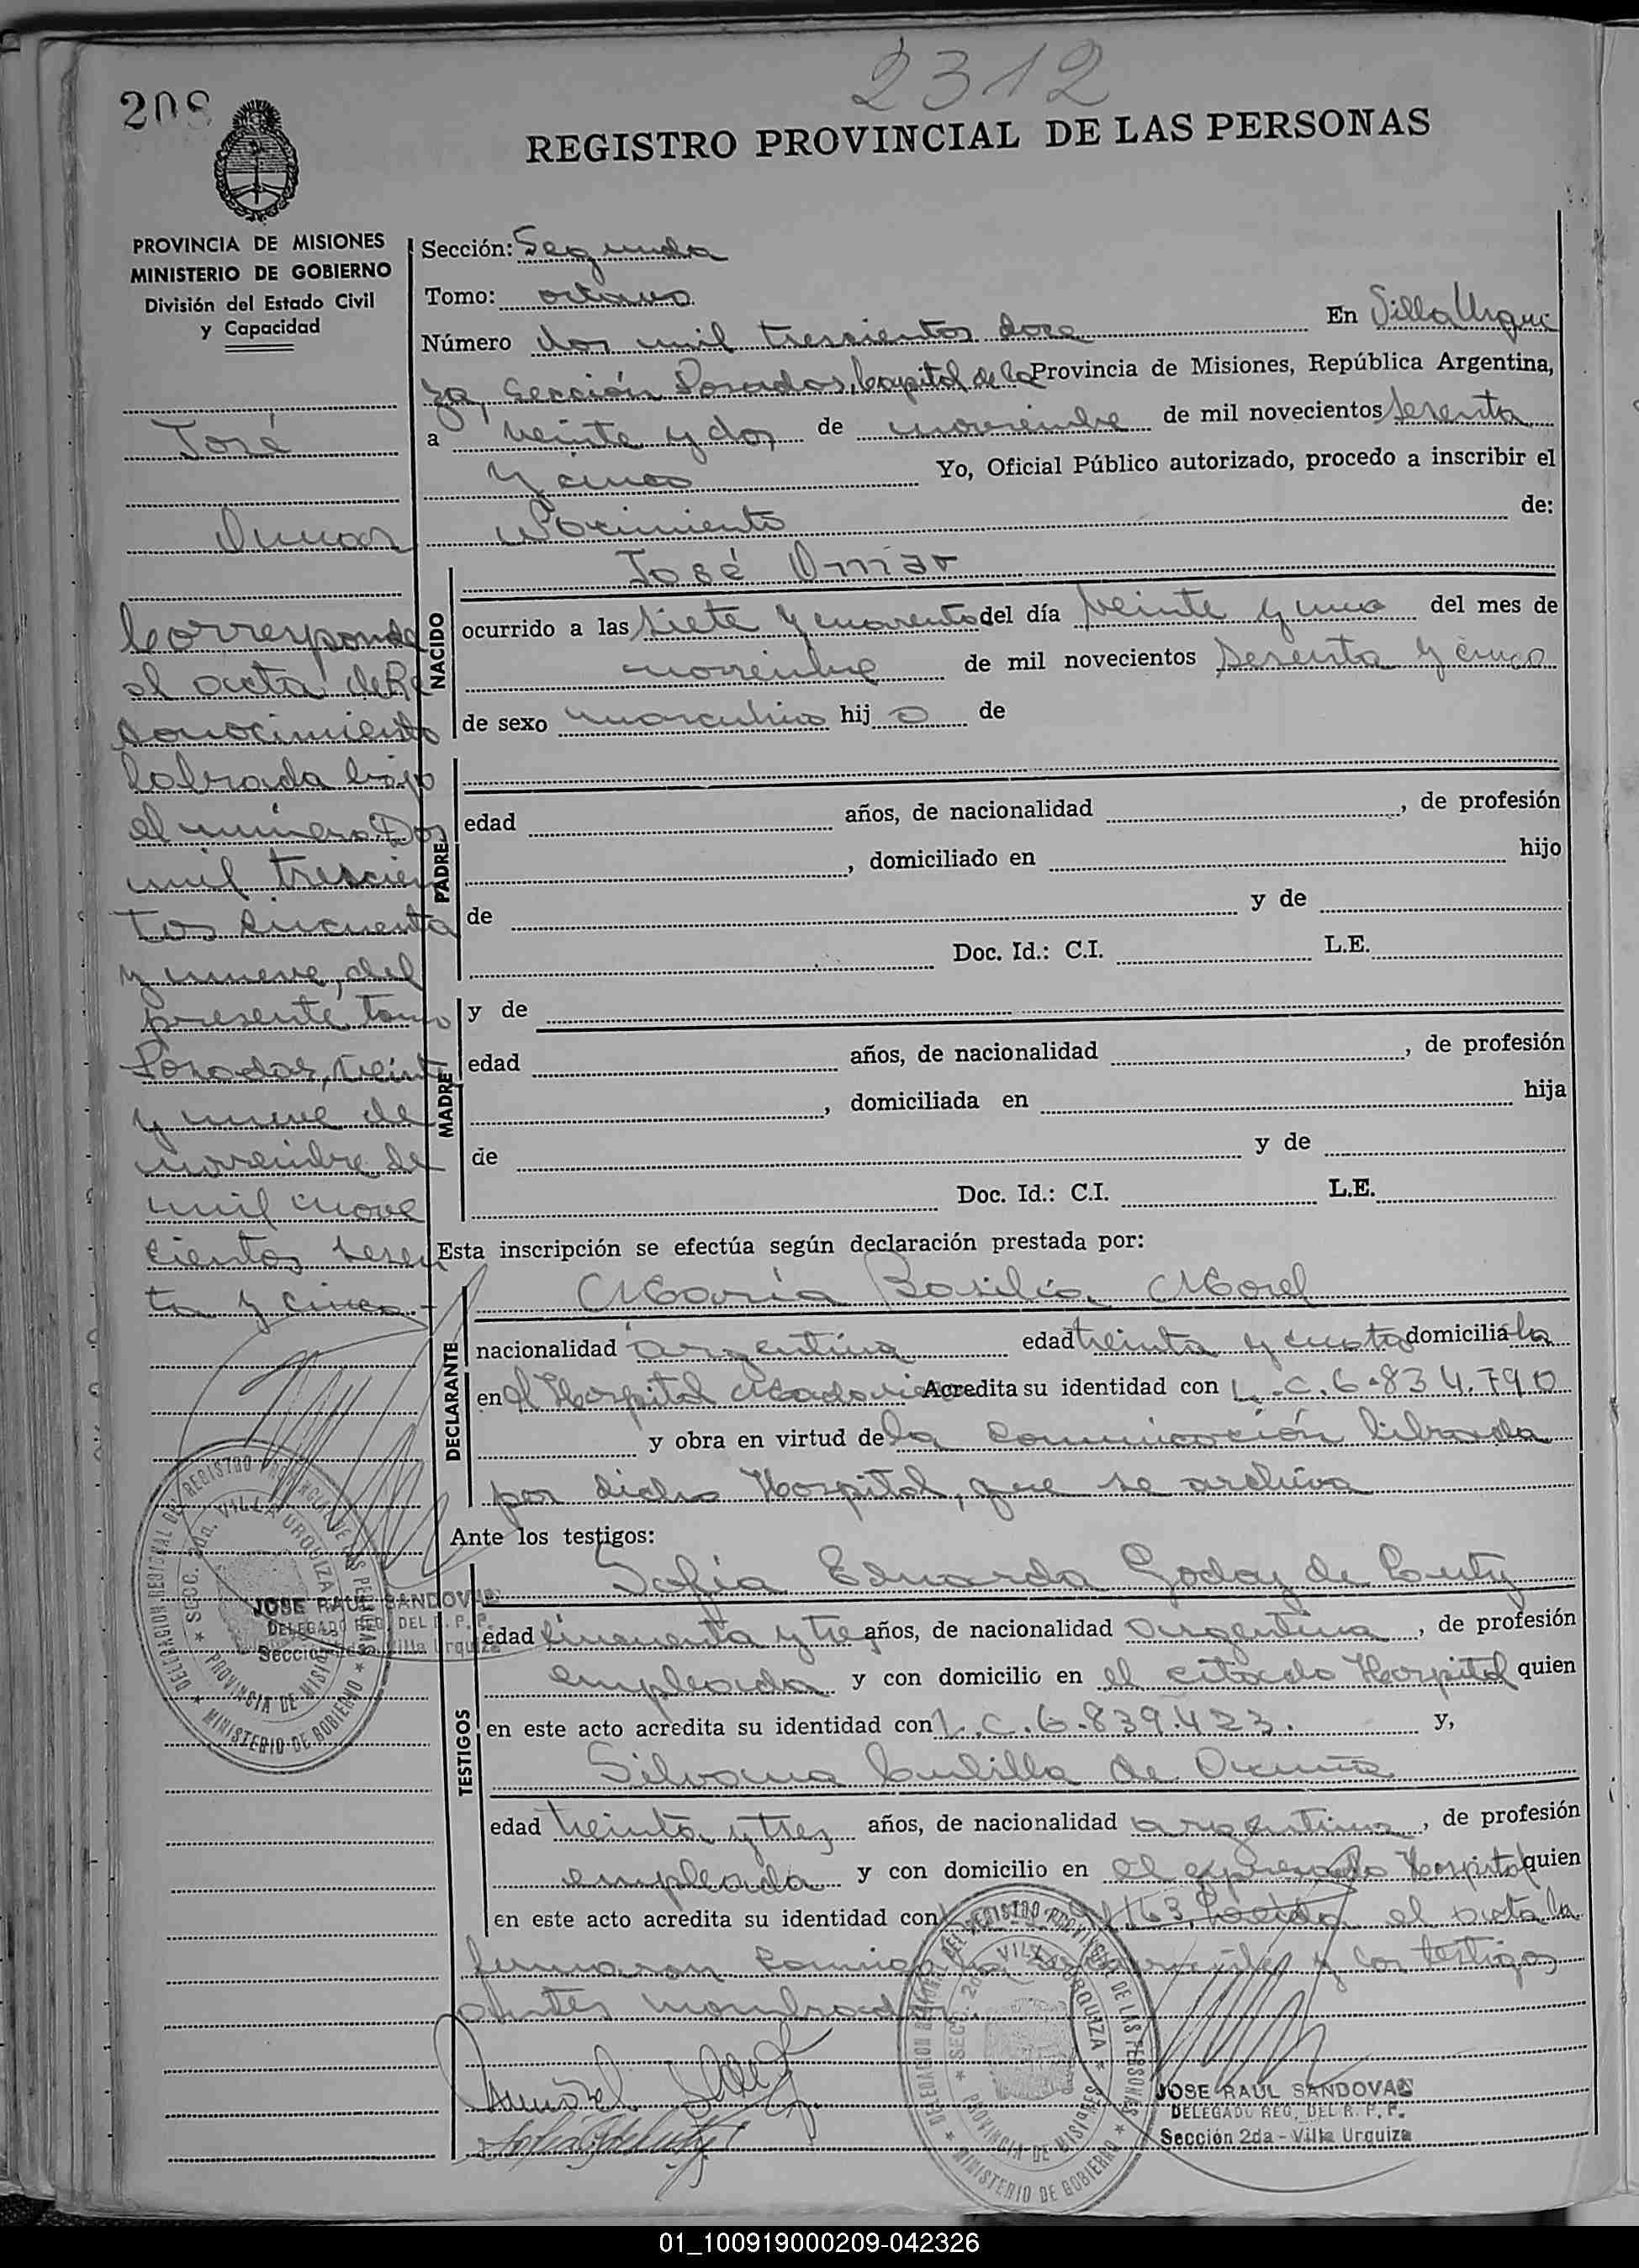 2312
208
REGISTRO PROVINCIAL DE LAS PERSONAS
PROVINCIA DE MISIONES
MINISTERIO DE GOBIERNO
División del Estado Civil
y Capacidad
José
Omar
Corresponde
al acta de Re
conocimiento
labrada bajo
el número Dos
mil trescien
tos cincuenta
y nueve, del
presente tomo
Posadas, veinti
y nueve de
noviembre de
mil nove
cientos sesen
ta y cinco.-
JOSE RAUL SANDOVAL
DELEGADO REG. DEL R. P. P.
Sección 2da - Villa Urquiza
Sección: Segunda
Tomo: octavo
Número dos mil trescientos doce En Villa Urqui
za, Sección Posadas, Capital de la Provincia de Misiones, República Argentina,
a veinte y dos de noviembre de mil novecientos sesenta
y cinco Yo, Oficial Público autorizado, procedo a inscribir el
Nacimiento de:
NACIDO
José Omar
ocurrido a las siete y cuarenta del día veinte y uno del mes de
noviembre de mil novecientos sesenta y cinco
de sexo masculino hijo de
PADRE
edad años, de nacionalidad , de profesión
, domiciliado en hijo
de y de
Doc. Id.: C.I. L.E.
MADRE
y de
edad años, de nacionalidad , de profesión
, domiciliada en hija
de y de
Doc. Id.: C.I. L.E.
Esta inscripción se efectúa según declaración prestada por:
DECLARANTE
María Basilia Morel
nacionalidad argentina edad treinta y cuatro domicilia da
en el Hospital Madariaga Acredita su identidad con L.C. 6.834.790
y obra en virtud de la comunicación librada
por dicho Hospital, que se archiva
Ante los testigos:
TESTIGOS
Sofía Eduarda Godoy de
edad cincuenta y tres años, de nacionalidad argentina, de profesión
empleada y con domicilio en el citado Hospital quien
en este acto acredita su identidad con L.C. 6.839.423. y,
Silvana de
edad treinta y tres años, de nacionalidad argentina, de profesión
empleada y con domicilio en el expresado Hospital quien
en este acto acredita su identidad con 163. Leída el acta la
firmaron conmigo la y los testigos
antes nombrados.
DELEGACION REGIONAL DEL REGISTRO PROVINCIAL DE LAS PERSONAS
SECC. 2da. VILLA URQUIZA
PROVINCIA DE MISIONES
MINISTERIO DE GOBIERNO
JOSE RAUL SANDOVAL
DELEGADO REG. DEL R. P. P.
Sección 2da - Villa Urquiza
01_100919000209-042326